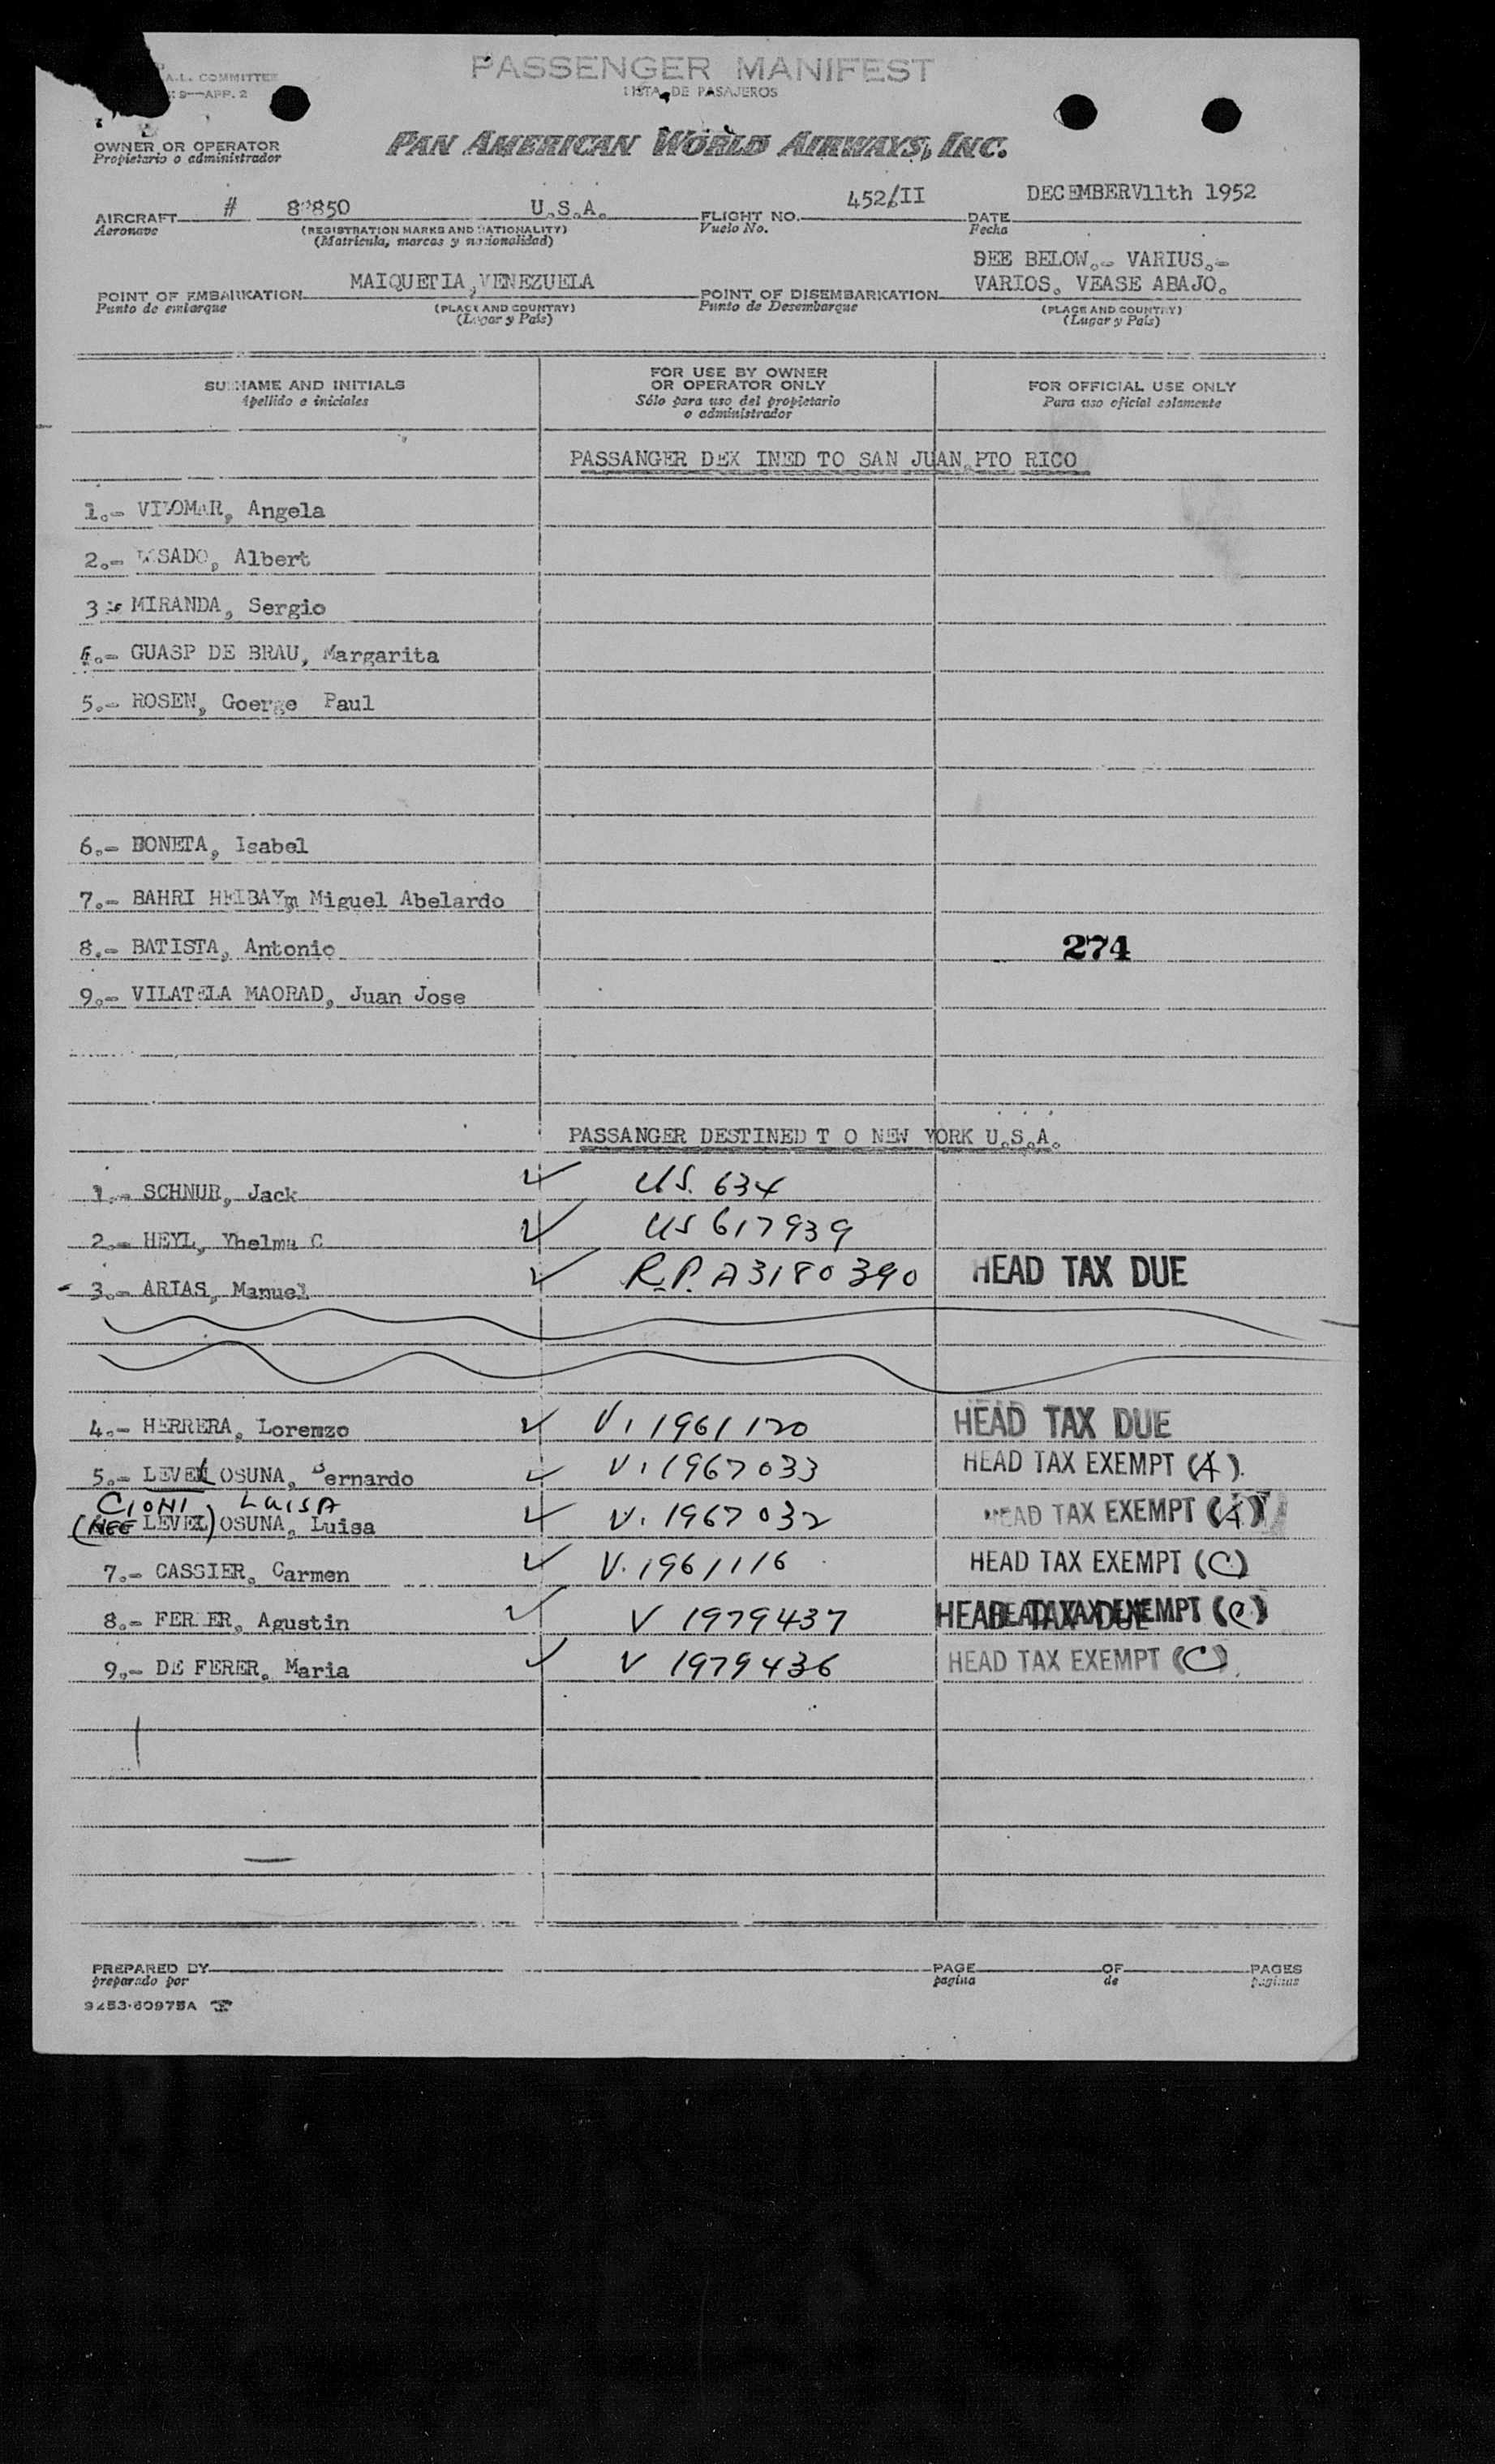 A.L. COMMITTEE
9—APP. 2
PASSENGER MANIFEST
LISTA DE PASAJEROS
OWNER OR OPERATOR
Propietario o administrador
PAN AMERICAN WORLD AIRWAYS, INC.
AIRCRAFT # 850 U.S.A. FLIGHT NO. 452/II DATE DECEMBERV11th 1952
Aeronave (REGISTRATION MARKS AND NATIONALITY) Vuelo No. Fecha
(Matrícula, marcas y nacionalidad)
SEE BELOW.- VARIUS.-
POINT OF EMBARKATION MAIQUETIA,VENEZUELA POINT OF DISEMBARKATION VARIOS. VEASE ABAJO.
Punto de embarque (PLACE AND COUNTRY) Punto de Desembarque (PLACE AND COUNTRY)
(Lugar y País) (Lugar y País)
SURNAME AND INITIALS FOR USE BY OWNER OR OPERATOR ONLY FOR OFFICIAL USE ONLY
Apellido e iniciales Sólo para uso del propietario o administrador Para uso oficial solamente
PASSANGER INED TO SAN JUAN,PTO RICO
1.- Angela
2.- Albert
3 MIRANDA, Sergio
4.- GUASP DE BRAU, Margarita
5.- ROSEN, Goerge Paul
6.- BONETA, Isabel
7.- BAHRI HEIBAYm Miguel Abelardo
8.- BATISTA, Antonio 274
9.- VILATELA MAORAD, Juan Jose
PASSANGER DESTINED T O NEW YORK U.S.A.
1.- SCHNUR, Jack ✓ US. 634
2.- HEYL, Yhelma C ✓ US 617939
3.- ARIAS, Manuel ✓ R.P. A3180390 HEAD TAX DUE
4.- HERRERA, Lorenzo ✓ V. 1961120 HEAD TAX DUE
5.- LEVEL OSUNA, Bernardo ✓ V. 1967033 HEAD TAX EXEMPT (A).
CIONI LUISA
(NEE LEVEL) OSUNA, Luisa ✓ V. 1967032 HEAD TAX EXEMPT (A)
7.- CASSIER, Carmen ✓ V. 1961116 HEAD TAX EXEMPT (C)
8.- FERER, Agustin ✓ V 1979437 HEAD TAX DUE HEAD TAX EXEMPT (C)
9.- DE FERER, Maria ✓ V 1979436 HEAD TAX EXEMPT (C)
PREPARED BY PAGE OF PAGES
preparado por pagina de paginas
9253-60975A